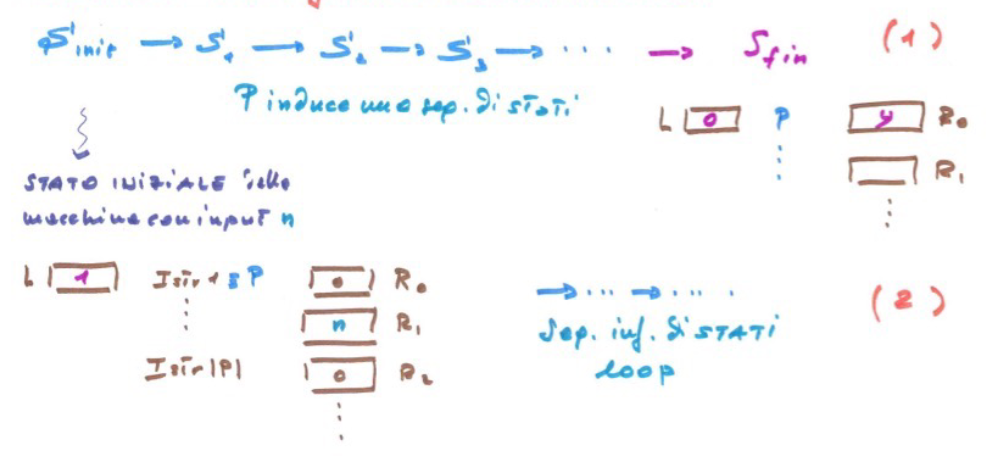 S init → S₁ → S₂ → S₃ → ... → S fin (1)
P induce una seq. di stati
L 0 P y R₀
R₁
STATO INIZIALE della
macchina con input n
L 1 Istr 1 P 0 R₀
n R₁
Istr |P| 0 R₂
→ ... → ... . (2)
Seq. inf. di STATI
loop